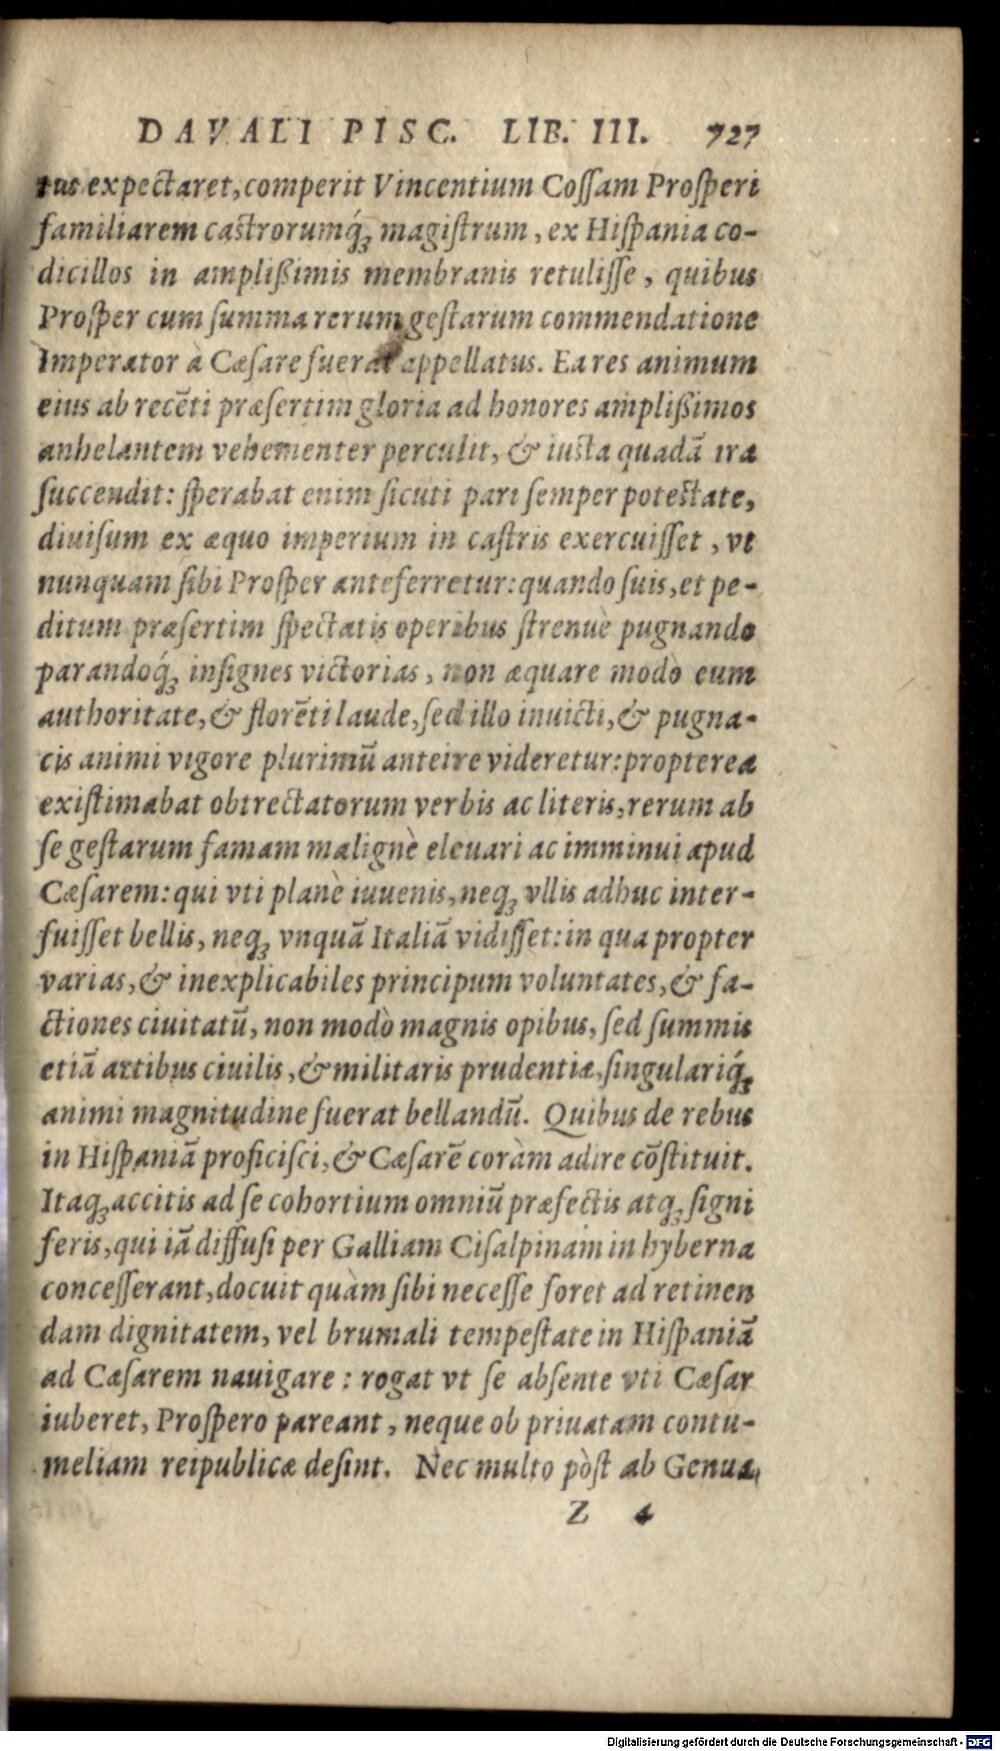 DAVALI PISC. LIB. III. 727
tus expectaret, comperit Vincentium Coſſam Proſperi
familiarem caſtrorumq́ꝫ magiſtrum, ex Hiſpania co-
dicillos in ampliſſimis membranis retuliſſe, quibus
Proſper cum ſumma rerum geſtarum commendatione
Imperator à Cæſare fuerat appellatus. Ea res animum
eius ab recẽti præſertim gloria ad honores ampliſſimos
anhelantem vehementer perculit, & iuſta quadã ira
ſuccendit: ſperabat enim ſicuti pari ſemper poteſtate,
diuiſum ex æquo imperium in caſtris exercuiſſet, vt
nunquam ſibi Proſper anteferretur: quando ſuis, et pe-
ditum præſertim ſpectatis operibus ſtrenuè pugnando
parandoq́ꝫ inſignes victorias, non æquare modò eum
authoritate, & florẽti laude, ſed illo inuicti, & pugna-
cis animi vigore plurimũ anteire videretur: propterea
exiſtimabat obtrectatorum verbis ac literis, rerum ab
ſe geſtarum famam malignè eleuari ac imminui apud
Cæſarem: qui vti planè iuuenis, neqꝫ vllis adhuc inter-
fuiſſet bellis, neqꝫ vnquã Italiã vidiſſet: in qua propter
varias, & inexplicabiles principum voluntates, & fa-
ctiones ciuitatũ, non modò magnis opibus, ſed ſummis
etiã artibus ciuilis, & militaris prudentiæ, ſingulariq́ꝫ
animi magnitudine fuerat bellandũ. Quibus de rebus
in Hiſpaniã proficiſci, & Cæſarẽ coràm adire cõſtituit.
Itaqꝫ accitis ad ſe cohortium omniũ præfectis atqꝫ ſigni
feris, qui iã diffuſi per Galliam Ciſalpinam in hyberna
conceſſerant, docuit quàm ſibi neceſſe foret ad retinen
dam dignitatem, vel brumali tempeſtate in Hiſpaniã
ad Cæſarem nauigare: rogat vt ſe abſente vti Cæſar
iuberet, Proſpero pareant, neque ob priuatam contu-
meliam reipublicæ deſint. Nec multo pòſt ab Genua,
Z 4
Digitalisierung gefördert durch die Deutsche Forschungsgemeinschaft - DFG